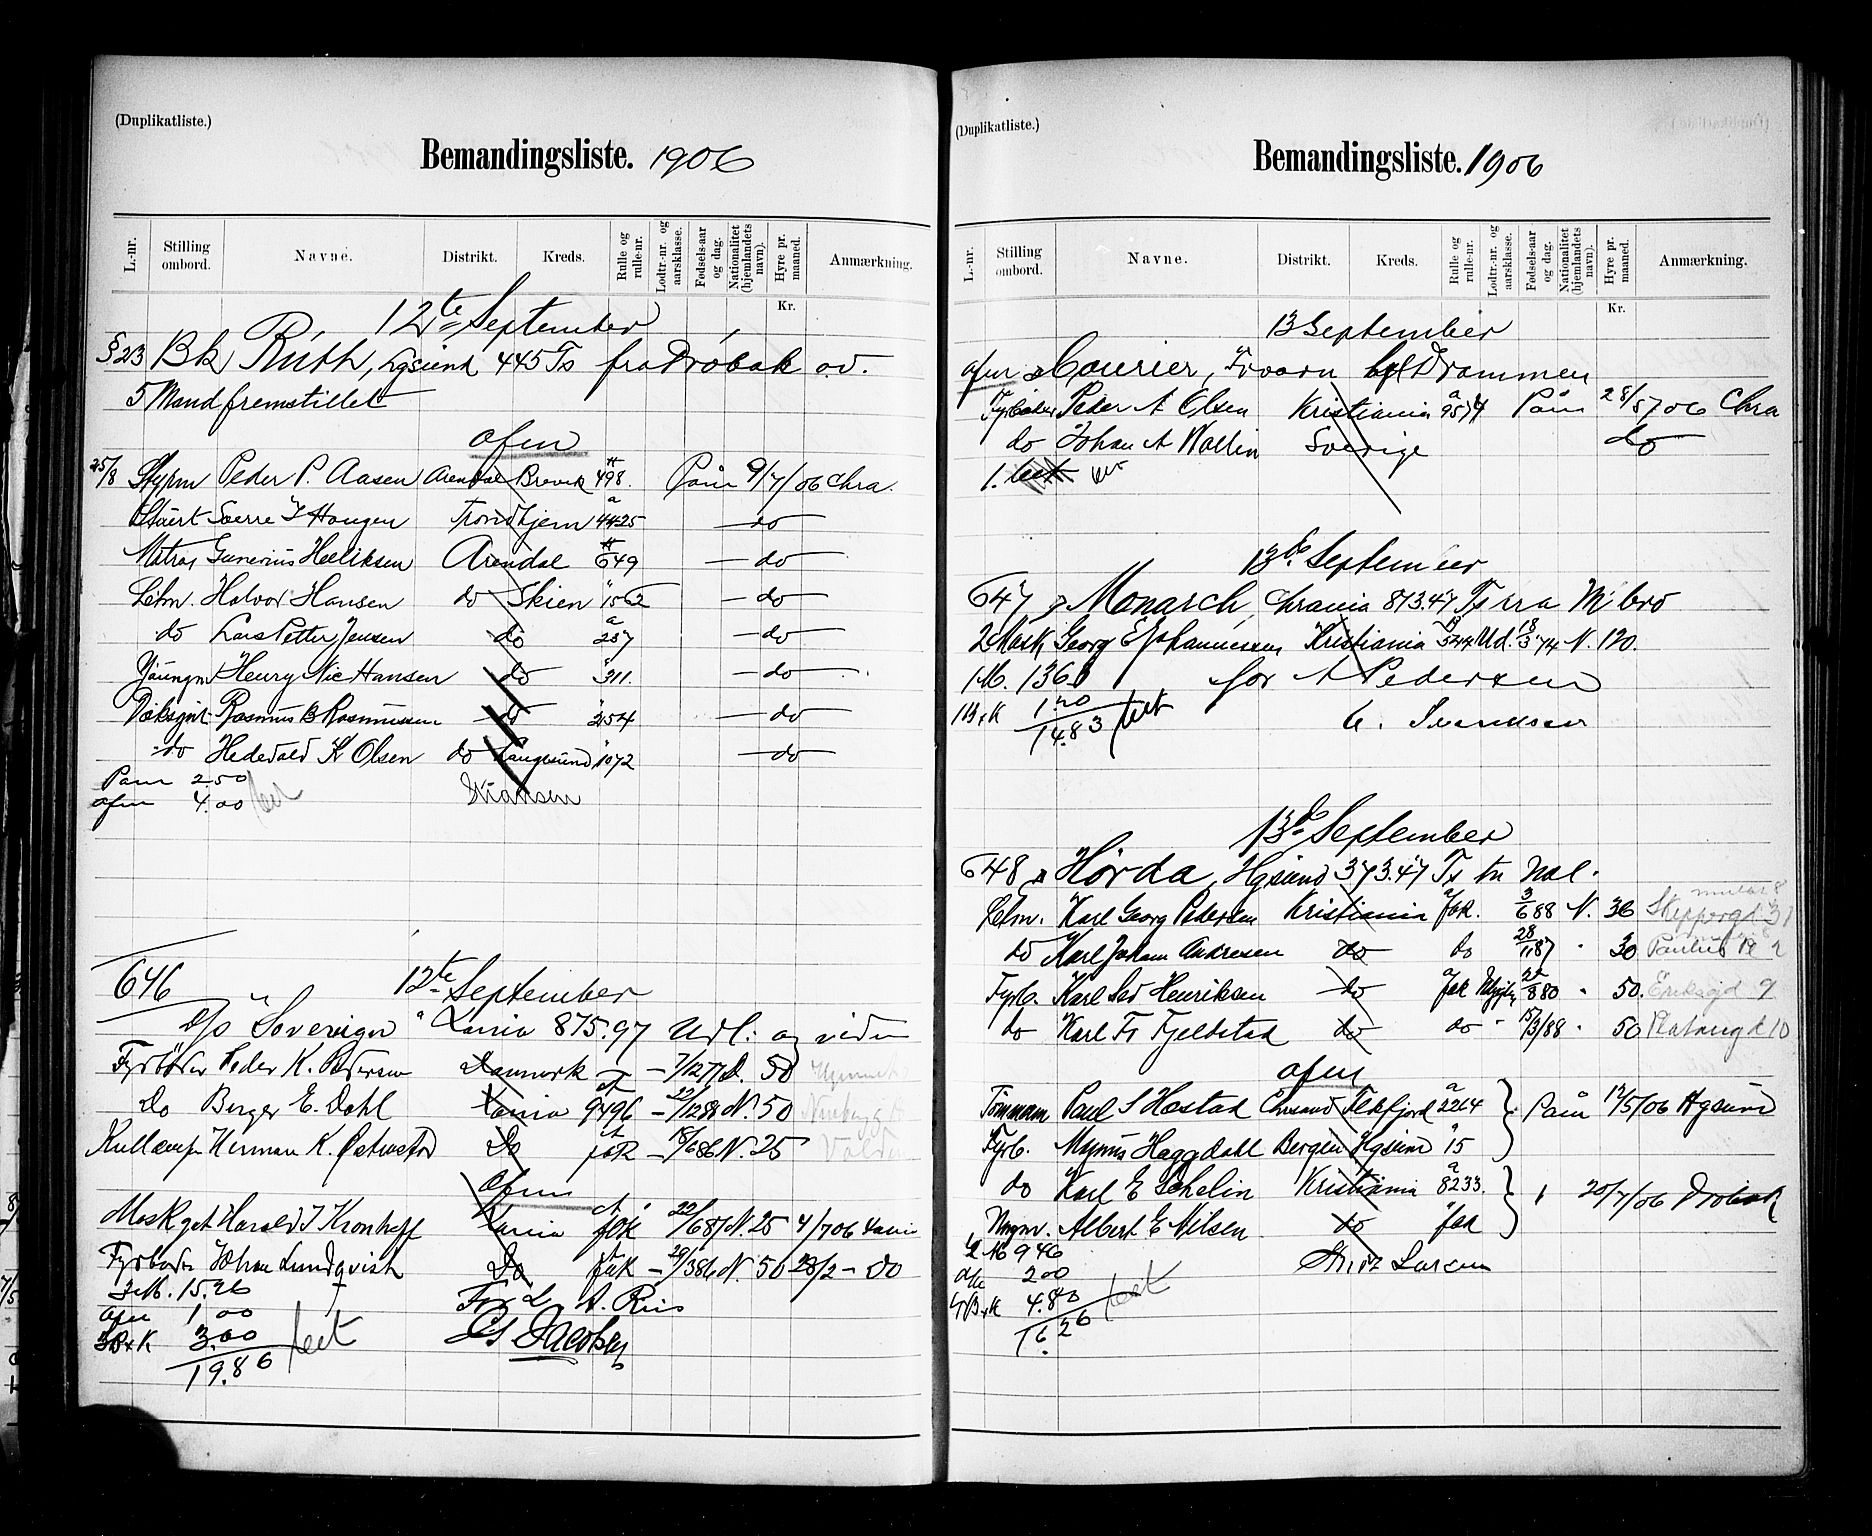 (Duplikatliste.)
Bemandingsliste. 1906
L.-nr. Stilling ombord. Navne. Distrikt. Kreds. Rulle og rulle-nr. Lodtr.-nr. og aarsklasse. Fødsels-aar og dag. Nationalitet (hjemlandets navn). Hyre pr. maaned. Anmærkning.
Kr.
12te September
§23 Bk Ruth, 445 Ts fra Drøbak o.v.
5 Mand fremstillet
afm
25/8 Styrm Peder P. Aasen Arendal Brevik 498. Påm 9/7/06 Chra.
Stuert Sverre I Haugen Trondhjem 4425 do
Matros Gunerius Helliksen Arendal 649 do
Letm. Halvor Hansen do Skien 1562 do
do Lars Petter Jensen do 257 do
Jüngm Henry Nic Hansen do 311. do
Dæksgut Rasmus B Rasmussen do 354 do
do Hedevald K Olsen do Langesund 1072 do
Paam 2.50
afm 4.00
646 12te September
Sovereign 875.97 Udl: og viden
Fyrbøder Peder K. Pedersen Danmark 7/1277 D. 50
Do Birger E. Dahl 9496 /1288 N. 50
Herman K. Do 18/686 N. 25
Afm
Harald J Kronhoff 22/687 N. 25 4/706
Fyrbøder Johan Lundqvist Do 29/386 N. 50 28/2 - Do
3 M. 15.26
afm 1.00
3B+K 3.00
19.86
A. Riis
Jacobsen
(Duplikatliste.)
Bemandingsliste. 1906
L.-nr. Stilling ombord. Navne. Distrikt. Kreds. Rulle og rulle-nr. Lodtr.-nr. og aarsklasse. Fødsels-aar og dag. Nationalitet (hjemlandets navn). Hyre pr. maaned. Anmærkning.
Kr.
13 September
afm Courier, Drammen
Fyrbøder Peder A Olsen Kristiania 9574 Påm 28/5/06 Chra
do Johan A Wallin Sverige do
13de September
647 Monarch, Chrania 873.47 Ts
2 Mask, Georg E Johannessen Kristiania 5244 Ud. 18/3 74 N. 120.
1 M. 13 63
1B+K 1.20
14.83
for A Pedersen
13de September
648 Hørda, Hgsund 373.47 Ts
Letm. Karl Georg Pedersen Kristiania 3/6 88 N. 36
do Karl Johan Andresen do do 28/11 87 " 30
Fyrb. Karl Sev Henriksen do 8 80 " 50.
do Karl Fr Fjeldstad do do 15/3/88 " 50
afm
Tømmm. Paul S Hæstad Chrsand Flekkefjord 2264 Påm 12/5/06 Hgsund
Fyrb. Magnus Haggdahl Bergen Hgsund 15
do Karl E Schelin Kristiania 8233. 20/7/06 Drøbak
Ungm. Albert E Nilsen do
9 46
afm 2 00
4B+K 4.80
16.26
Larsen